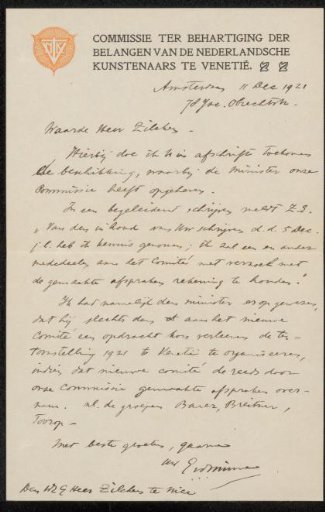 COMMISSIE TER BEHARTIGING DER
BELANGEN VAN DE NEDERLANDSCHE
KUNSTENAARS TE VENETIË.
Amsterdam 11 Dec 1921
Jac. Obrechtstr.
Waarde Heer Zilcken
Hierbij doe ik U in afschrift toekomen
de beschikking, waarbij de Minister onze
Commissie heeft opgeheven.
In een begeleidend schrijven meldt Z.E.
"Van den inhoud van Uw schrijven d.d. 5 Dec.
j.l. heb ik kennis genomen; ik zal een en ander
mededeelen aan het Comité met verzoek met
de gemaakte afspraken rekening te houden."
Ik had namelijk den minister erop gewezen,
dat hij slechts dan aan het nieuwe
Comité een opdracht kon verleenen de ten-
toonstelling 1921 te Venetië te organiseeren,
indien dat nieuwe comité de reeds door
onze Commissie gemaakte afspraken over-
nam. nl. de groepen Bauer, Breitner,
Toorop —
Met beste groeten, gaarne
uw
Den WelEd Heer Zilcken te Nice